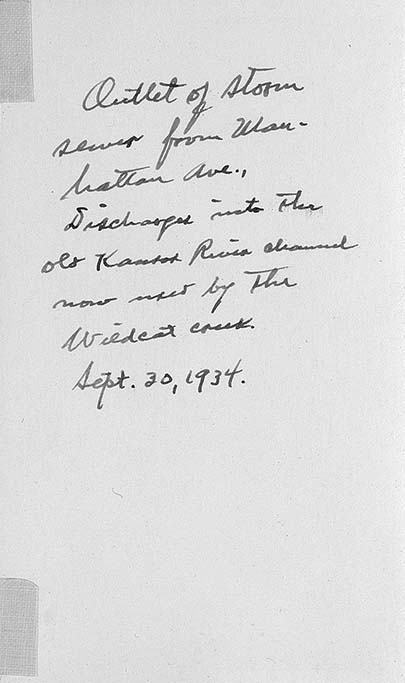 Outlet of storm
sewer from Man-
hattan Ave.,
Discharges into the
old Kansas River channel
now used by the
Wildcat creek.
Sept. 30, 1934.